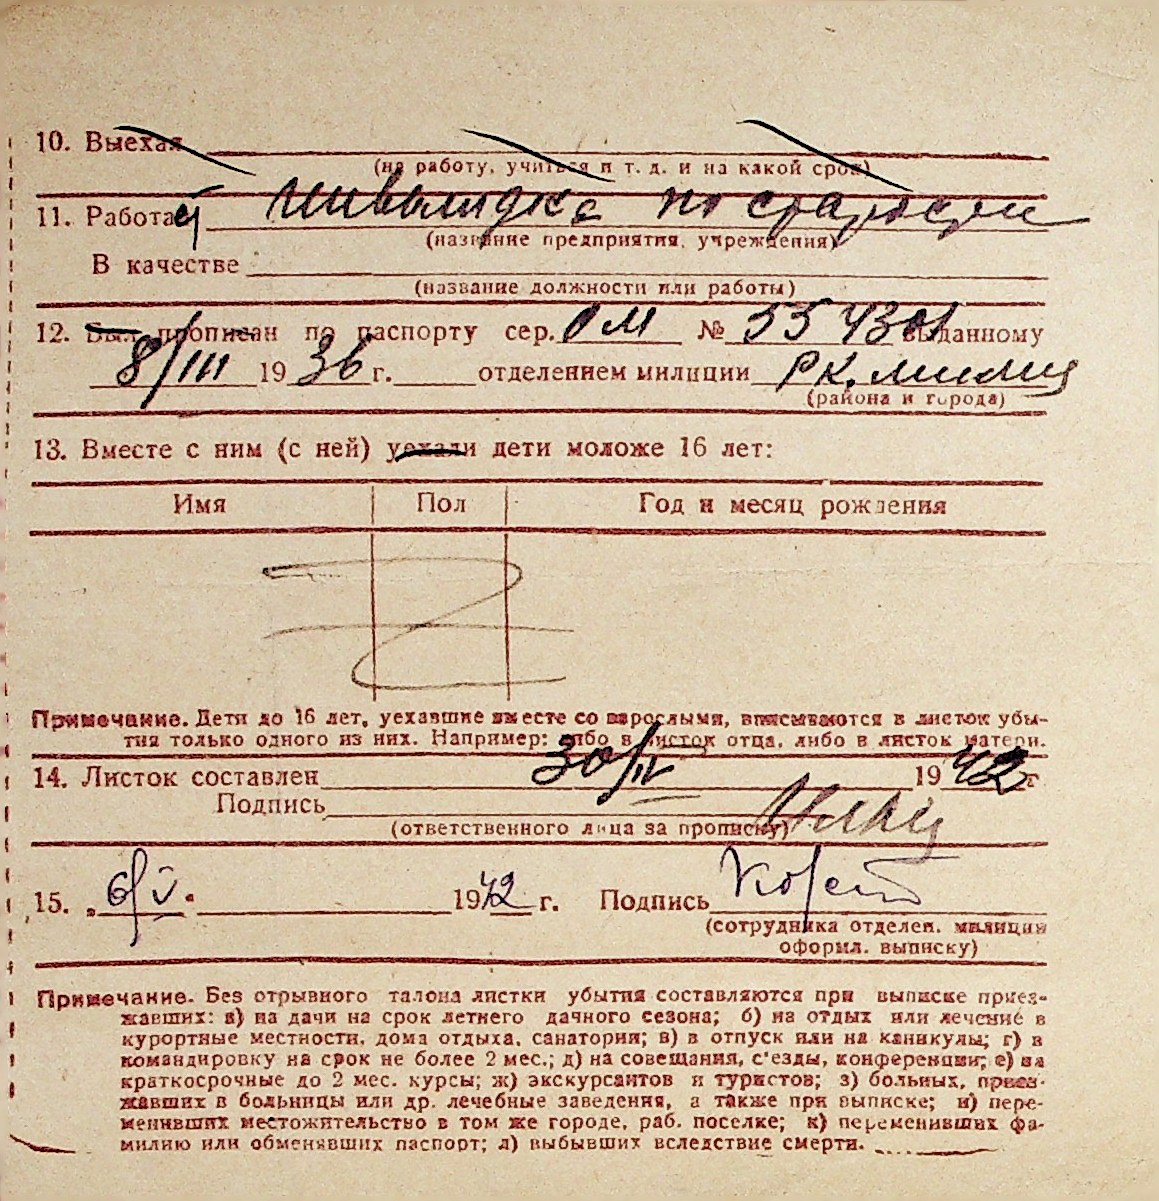 10. Выехал
(на работу, учиться и т. д. и на какой срок)
11. Работал инвалидка по старости
(название предприятия, учреждения)
В качестве
(название должности или работы)
12. Был прописан по паспорту сер. ОМ № 554301 выданному
8/III 1936 г. отделением милиции РК. милиц
(района и города)
13. Вместе с ним (с ней) уехали дети моложе 16 лет:
Имя Пол Год и месяц рождения
Примечание. Дети до 16 лет, уехавшие вместе со взрослыми, вписываются в листок убы-
тия только одного из них. Например: либо в листок отца, либо в листок матери.
14. Листок составлен 30/IV 1942 г
Подпись
(ответственного лица за прописку)
15. „6/V" 1942 г. Подпись
(сотрудника отделен. милиции
оформл. выписку)
Примечание. Без отрывного талона листки убытия составляются при выписке приез-
жавших: а) на дачи на срок летнего дачного сезона; б) на отдых или лечение в
курортные местности, дома отдыха, санатории; в) в отпуск или на каникулы; г) в
командировку на срок не более 2 мес.; д) на совещания, с'езды, конференции; е) на
краткосрочные до 2 мес. курсы; ж) экскурсантов и туристов; з) больных, приез-
жавших в больницы или др. лечебные заведения, а также при выписке; и) пере-
менивших местожительство в том же городе, раб. поселке; к) переменивших фа-
милию или обменявших паспорт; л) выбывших вследствие смерти.